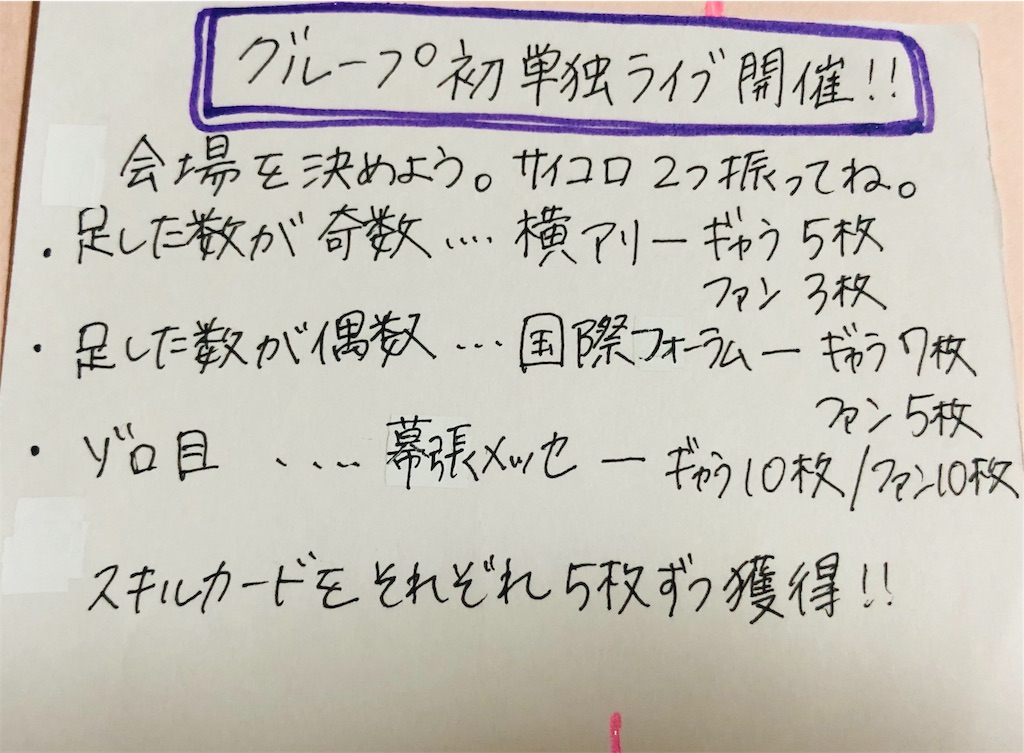 グループ初単独ライブ開催!!
会場を決めよう。サイコロ2つ振ってね。
・足した数が奇数‥‥横アリーギャラ5枚
ファン3枚
・足した数が偶数…国際フォーラムーギャラ7枚
ファン5枚
・ゾロ目‥‥幕張メッセーギャラ10枚/ファン10枚
スキルカードをそれぞれ5枚ずつ獲得!!